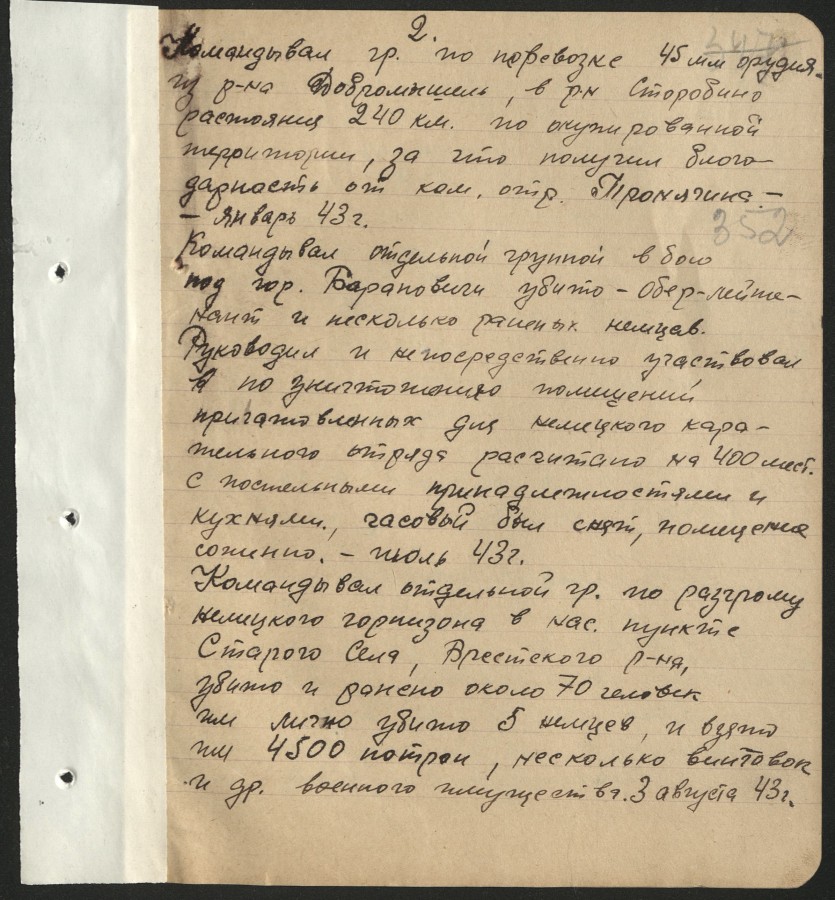 2.
347
Командывал гр. по поревозке 45 мм орудия.
из р-на Добромышль, в рн Сторобино
растояния 240 км. по окупированной
территории, за что получил благо-
дарность от ком. отр. Пронягина. -
- январь 43 г.
352
Командывал отдельной группой в бою
под гор. Барановичи убито - Обер-лейте-
нант и несколько раненых немцев.
Руководил и непосредственно участвовал
по зничтожению помищений
приготовленных для немецкого кара-
тельного отряда расчитано на 400 мест.
с постельными принадлежностями и
кухнями., часовый был снят, помещения
сожинно. - июль 43 г.
Командывал отдельной гр. по разгрому
немецкого горнизона в нас. пункте
Старого Села, Брестского р-на,
убито и ранено около 70 человек
им лично убито 5 немцев, и взято
им 4500 потрон, несколько винтовок
и др. военного имущества. 3 августа 43 г.